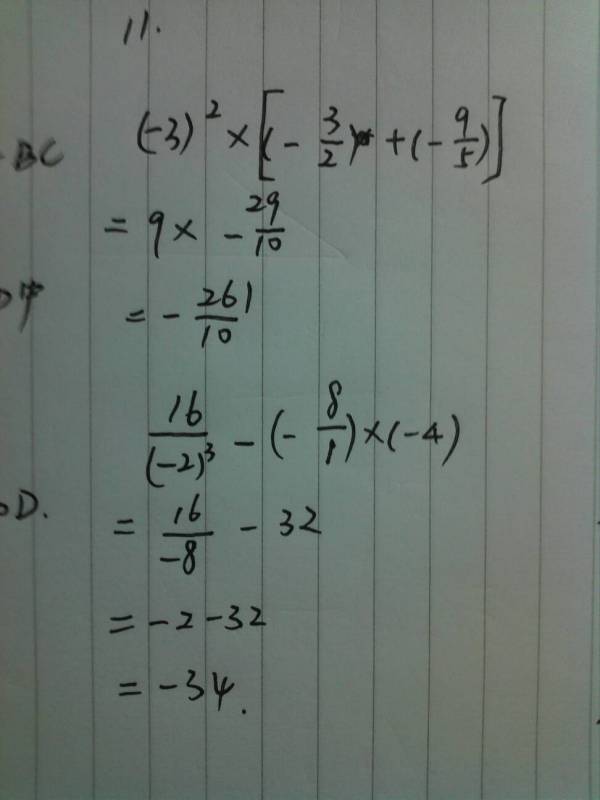 11.
(-3)² × [(-3/2) + (-9/5)]
BC
= 9 × -29/10
= -261/10
16/(-2)³ - (-8/1) × (-4)
D.
= 16/-8 - 32
= -2 - 32
= -34.